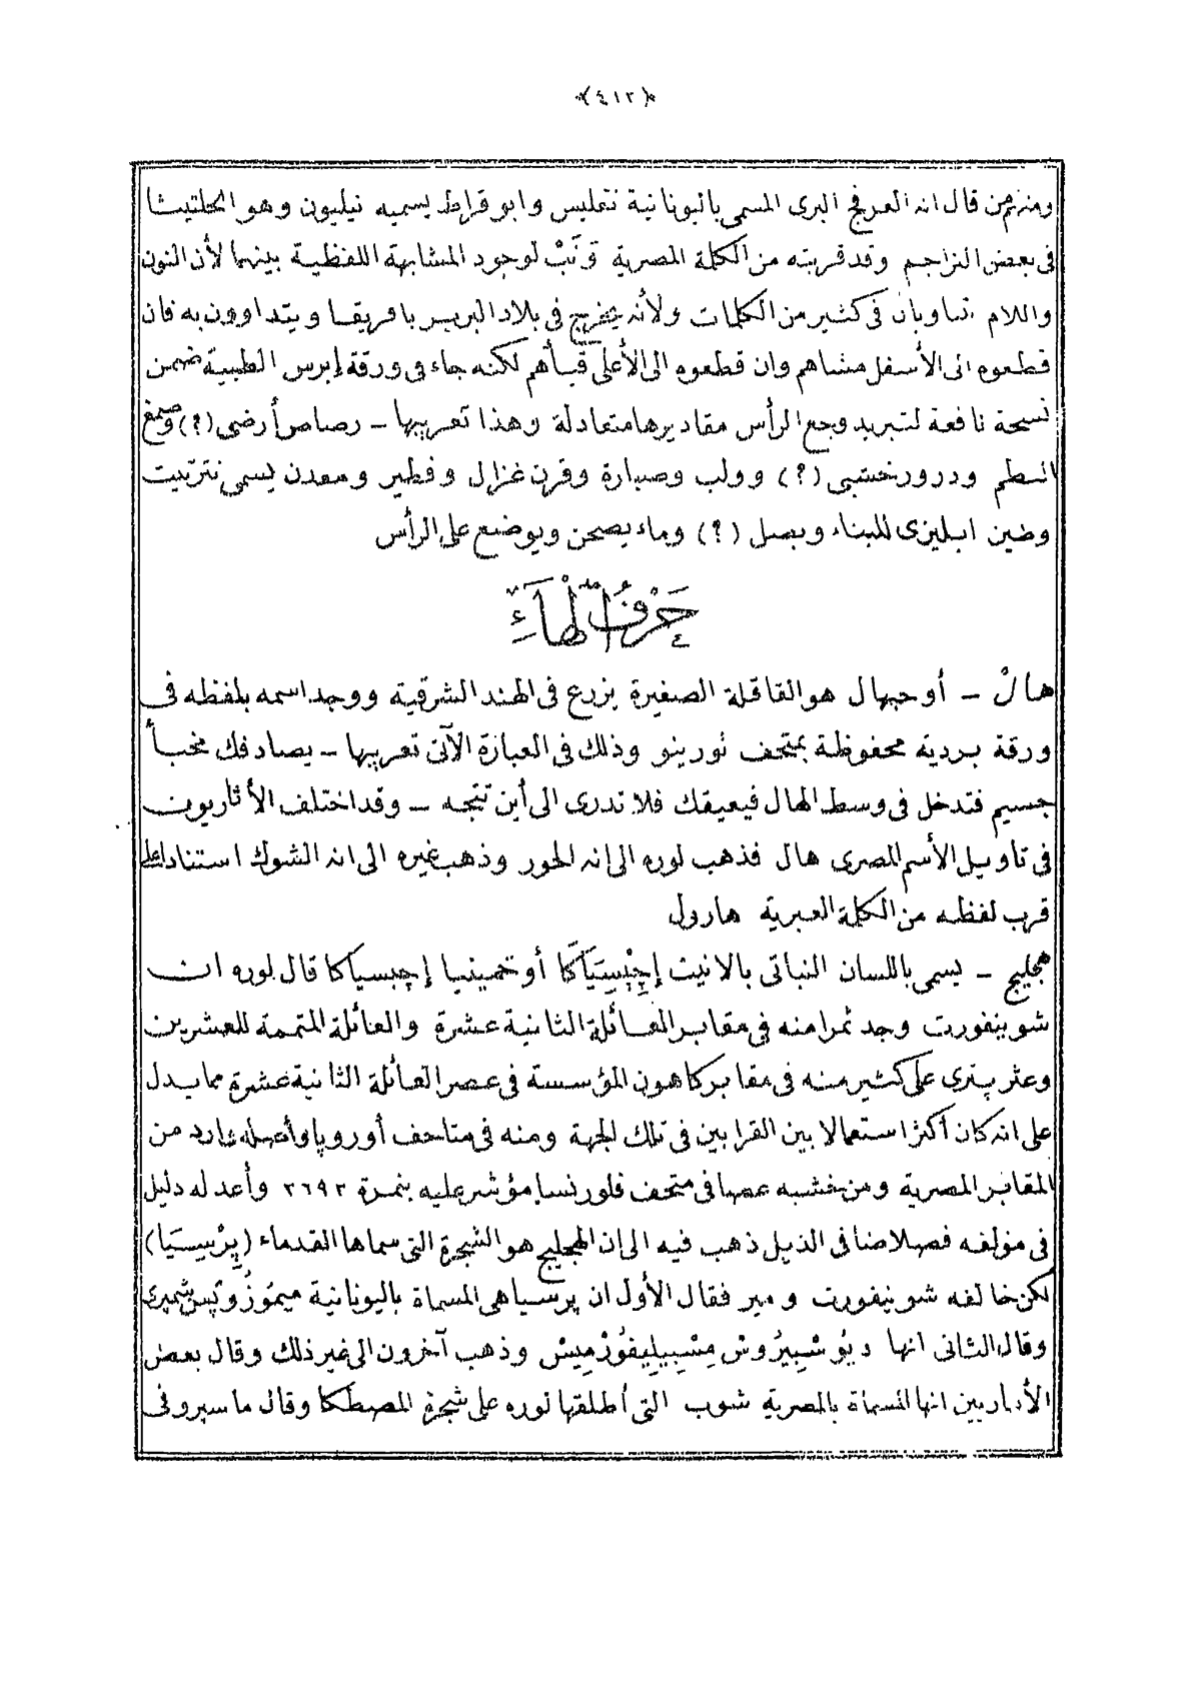 ﴿٤١٢﴾
ومنهم من قال انه العرفج البرى المسمى باليونانية نقليس وابو قراط يسميه نيليون وهو الحلتيثا
فى بعض التراجم وقد قربته من الكلمة المصرية تونب لوجود المشابهة اللفظية بينهما لأن النون
واللام تناوبان فى كثير من الكلمات ولأنه يخرج فى بلاد البربر بافريقا ويتداوون به فان
قطعوه الى الأسفل مشاهم وان قطعوه الى الأعلى قيأهم لكنه جاء فى ورقة إبرس الطبية ضمن
نسخة نافعة لتبريد وجع الرأس مقاديرها متعادلة وهذا تعريبها – رصاص أرضى (؟) وصمغ
السطم ودرور خشبى (؟) وولب وصبارة وقرن غزال وفطير ومعدن يسمى نترتيت
وطين ابليزى للبناء وبصل (؟) وماء يصحن ويوضع على الرأس
حَرْفُ الْهَاءِ
هالْ – أو حبهال هو القاقلة الصغيرة يزرع فى الهند الشرقية ووجد اسمه بلفظه فى
ورقة بردية محفوظة بمتحف تورينو وذلك فى العبارة الآتى تعريبها – يصادفك مخبأ
جسيم فتدخل فى وسط الهال فيعيقك فلا تدرى الى أين تتجه – وقد اختلف الأثاريون
فى تاويل الأسم المصرى هال فذهب لوره الى انه الحور وذهب غيره الى انه الشوك استنادا على
قرب لفظه من الكلمة العبرية هارول
هجليج – يسمى باللسان النباتى بالانيت إِجِبْسِتِيَاكَا أو خمينيا إجبسياكا قال لوره ان
شوينفورت وجد ثمرا منه فى مقابر العائلة الثانية عشرة والعائلة المتممة للعشرين
وعثر پترى على كثير منه فى مقابر كاهون المؤسسة فى عصر العائلة الثانية عشرة مما يدل
على انه كان أكثر استعمالا بين القرابين فى تلك الجهة ومنه فى متاحف أوروپا وأصله وارد من
المقابر المصرية ومن خشبه عصا فى متحف فلورنسا مؤشر عليه بنمرة ٢٦٩٢ وأعد له دليل
فى مؤلفه فصلا ضافى الذيل ذهب فيه الى ان الهجليج هو الشجرة التى سماها القدماء (پِرْسِيَا)
لكن خالفه شوينفورت ومير فقال الأول ان پرسيا هى المسماة باليونانية ميموزوپس شمپرى
وقال الثانى انها ديُوسْپِيرُوسْ مِسْپِيلِيفُوُرْمِيسْ وذهب آخرون الى غير ذلك وقال بعض
الأثاريين انها المسماة بالمصرية شوب التى أطلقها لوره على شجرة المصطكا وقال ماسپرو فى